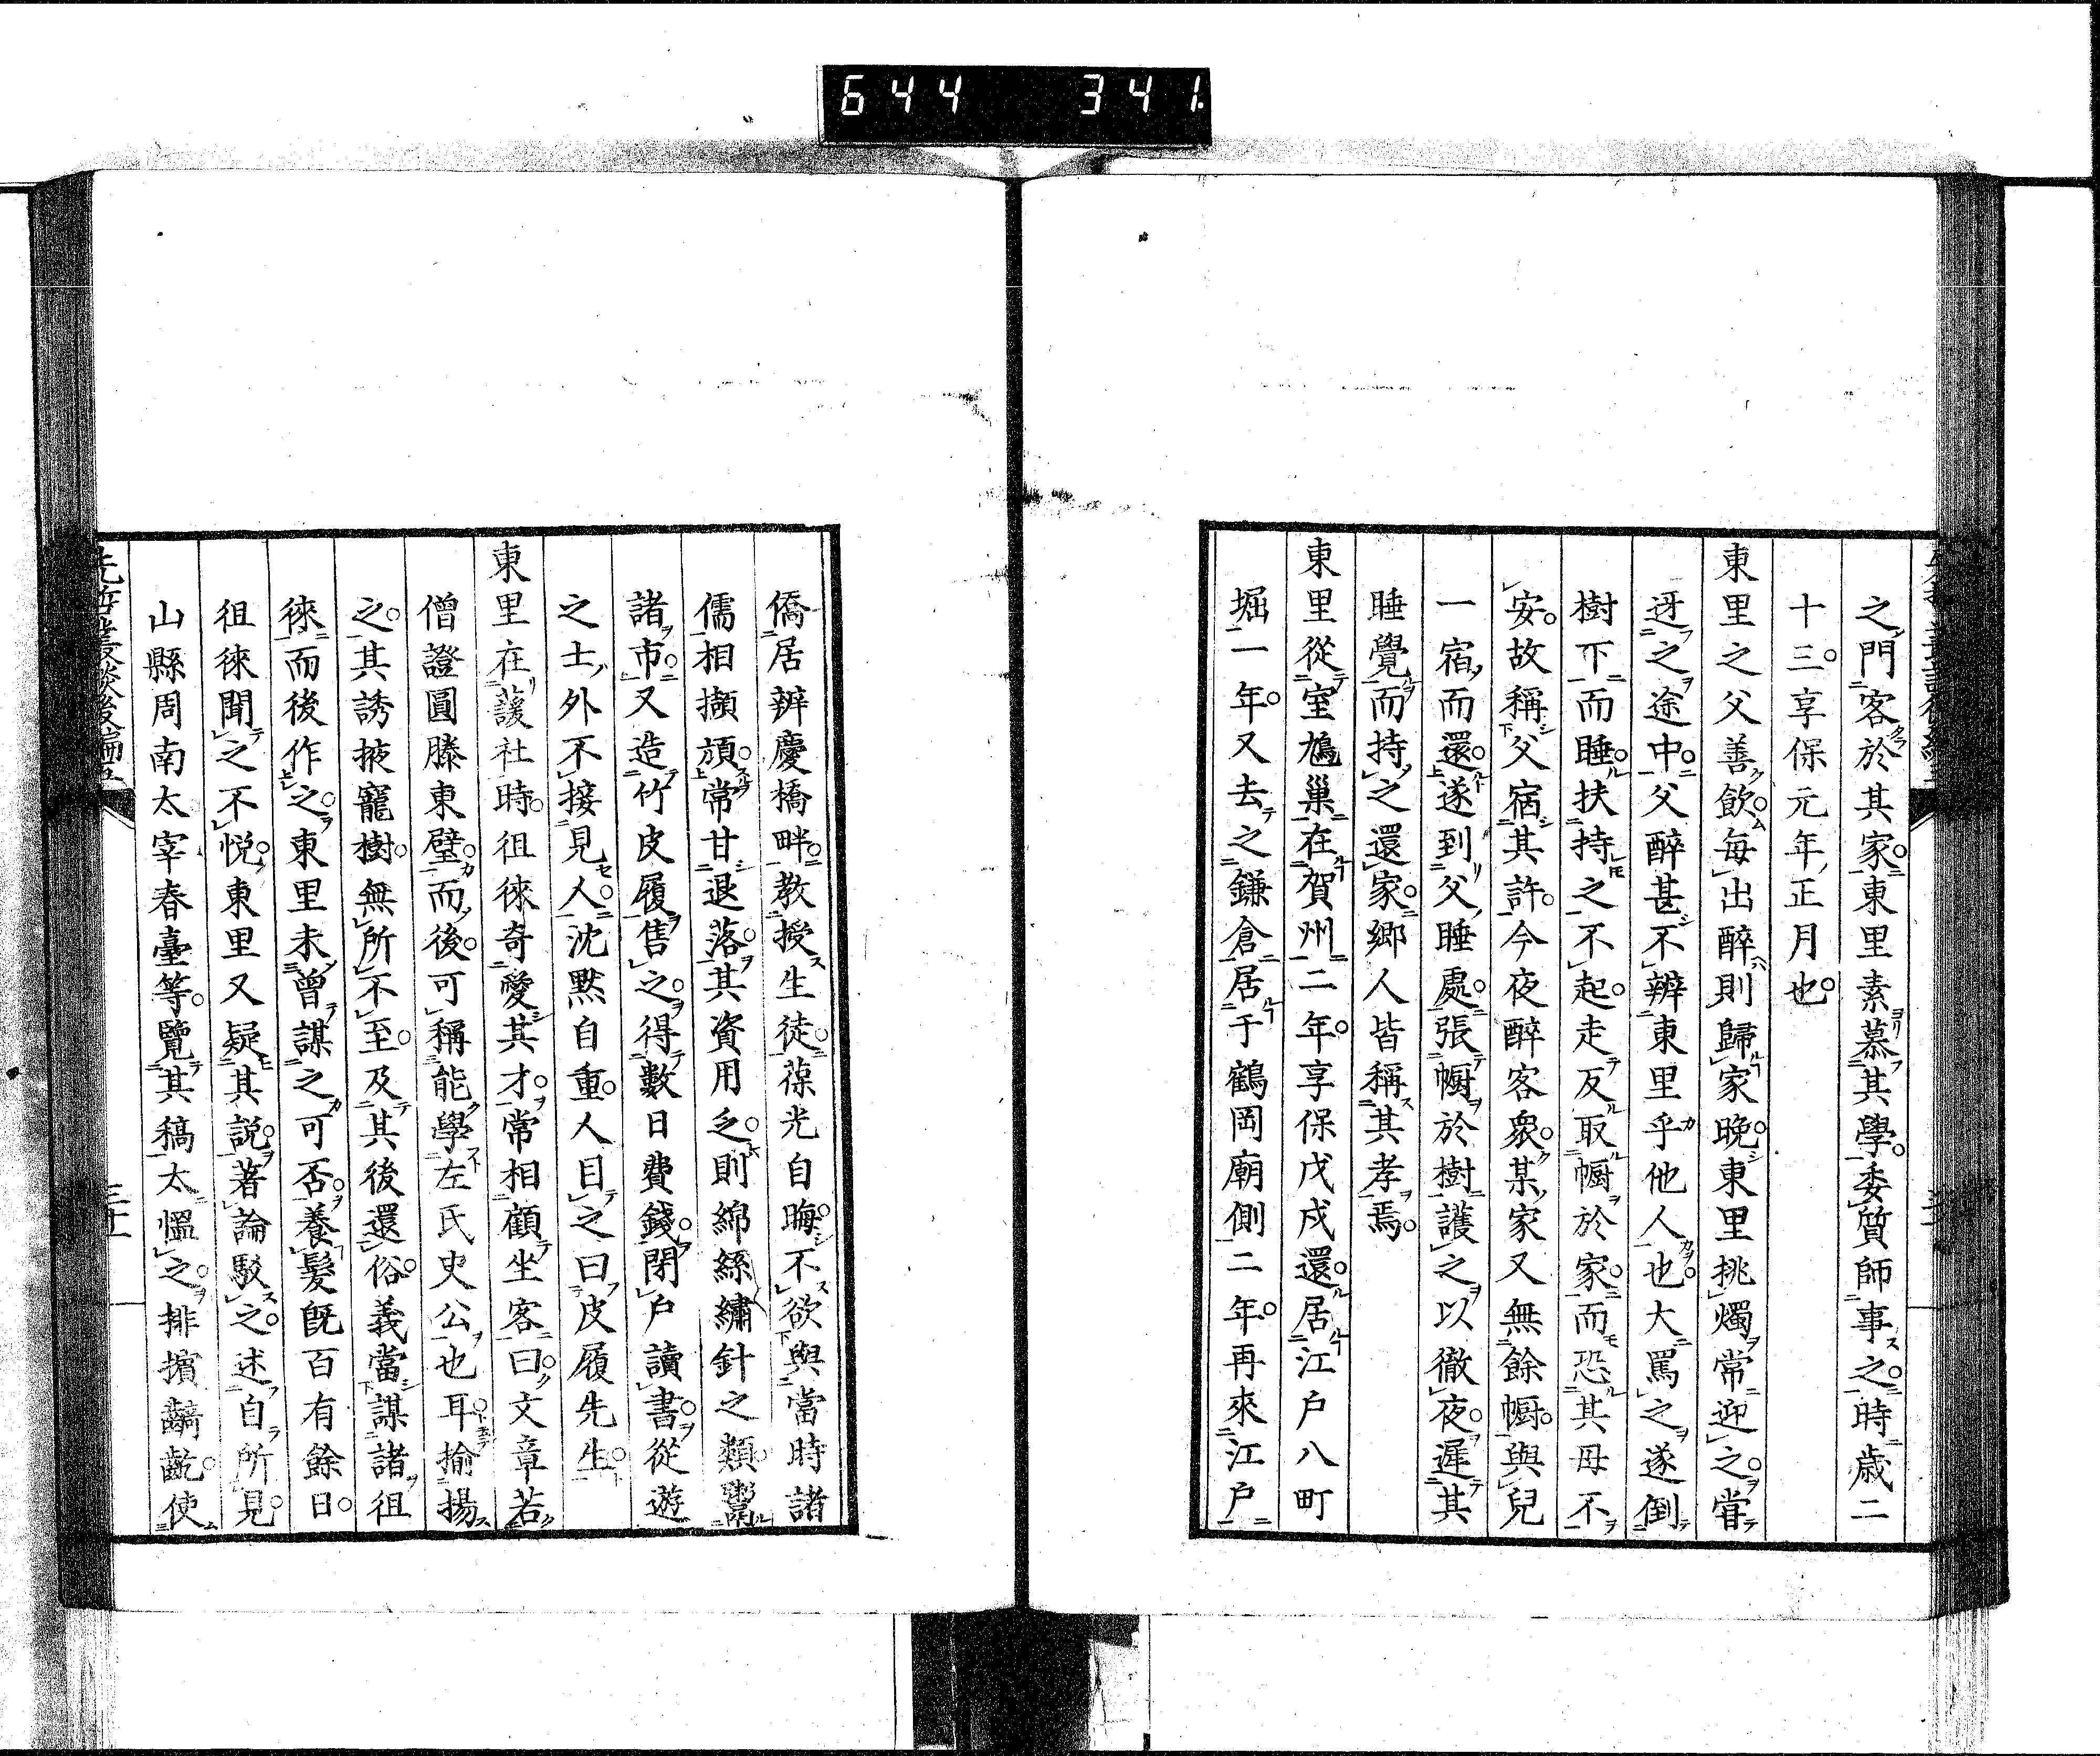 644 341
之門客於其家東里素慕其學委質師事之時歳二
十三享保元年正月也
東里之父善飲毎出醉則歸家晩東里挑燭常迎之甞
迓之途中父醉甚不辨東里乎他人也大罵之遂倒
樹下而睡扶持之不起走反取幮於家而恐其母不
安故稱父宿其許今夜醉客衆某家又無餘幮與兒
一宿而還遂到父睡處張幮於樹護之以徹夜遲其
睡覺而持之還家郷人皆稱其孝焉
東里從室鳩巢在賀州二年享保戊戌還居江戸八町
堀一年又去之鎌倉居于鶴岡廟側二年再來江戸
僑居辨慶橋畔教授生徒葆光自晦不欲與當時諸
儒相擷頏常甘退落其資用乏則綿絲繡針之類鬻
諸市又造竹皮履售之得數日費錢閉戸讀書從遊
之士外不接見人沈默自重人目之曰皮履先生
東里在蘐社時徂徠奇愛其才常相顧坐客曰文章若
僧證圓滕東壁而後可稱能學左氏史公也耳揄揚
之其誘掖寵樹無所不至及其後還俗義當謀諸徂
徠而後作之東里未曾謀之可否養髮既百有餘日
徂徠聞之不悦東里又疑其説著論駁之述自所見
山縣周南太宰春臺等覽其稿太慍之排擯齮齕使
先哲叢談後編五
三十一